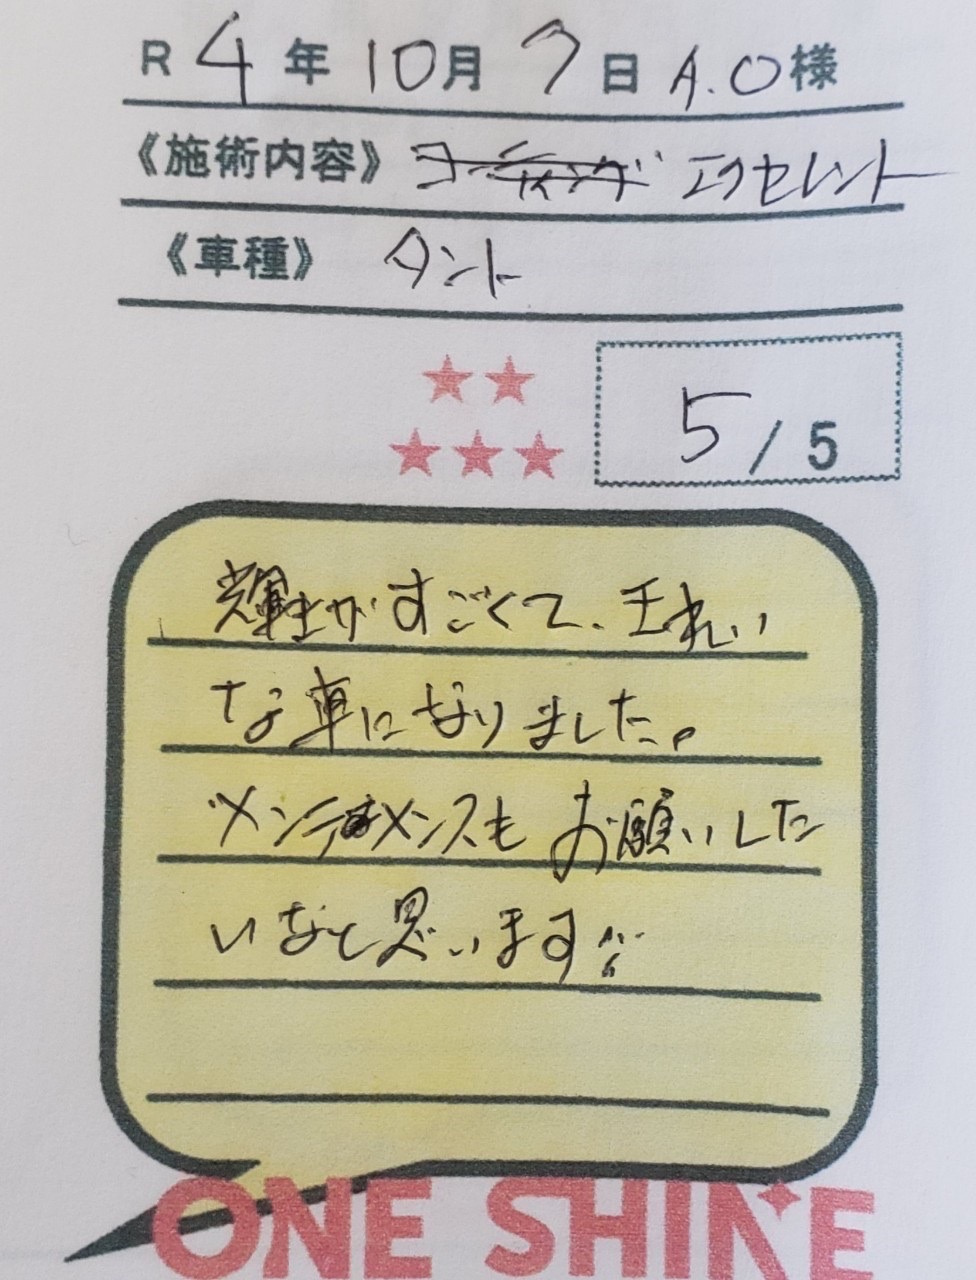 R 4年 10月 7日 A.O様
《施術内容》 コーティング エクセレント
《車種》 タント
★★
★★★
5/5
輝きがすごくて、きれい
な車になりました。
メンテナメンスも お願いした
いなと思います!!
ONE SHINE